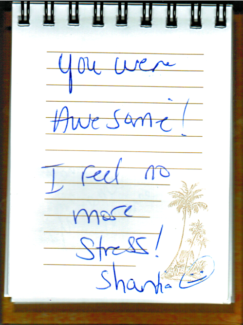 You were
Awesome!
I feel no
more
stress!
Shanta